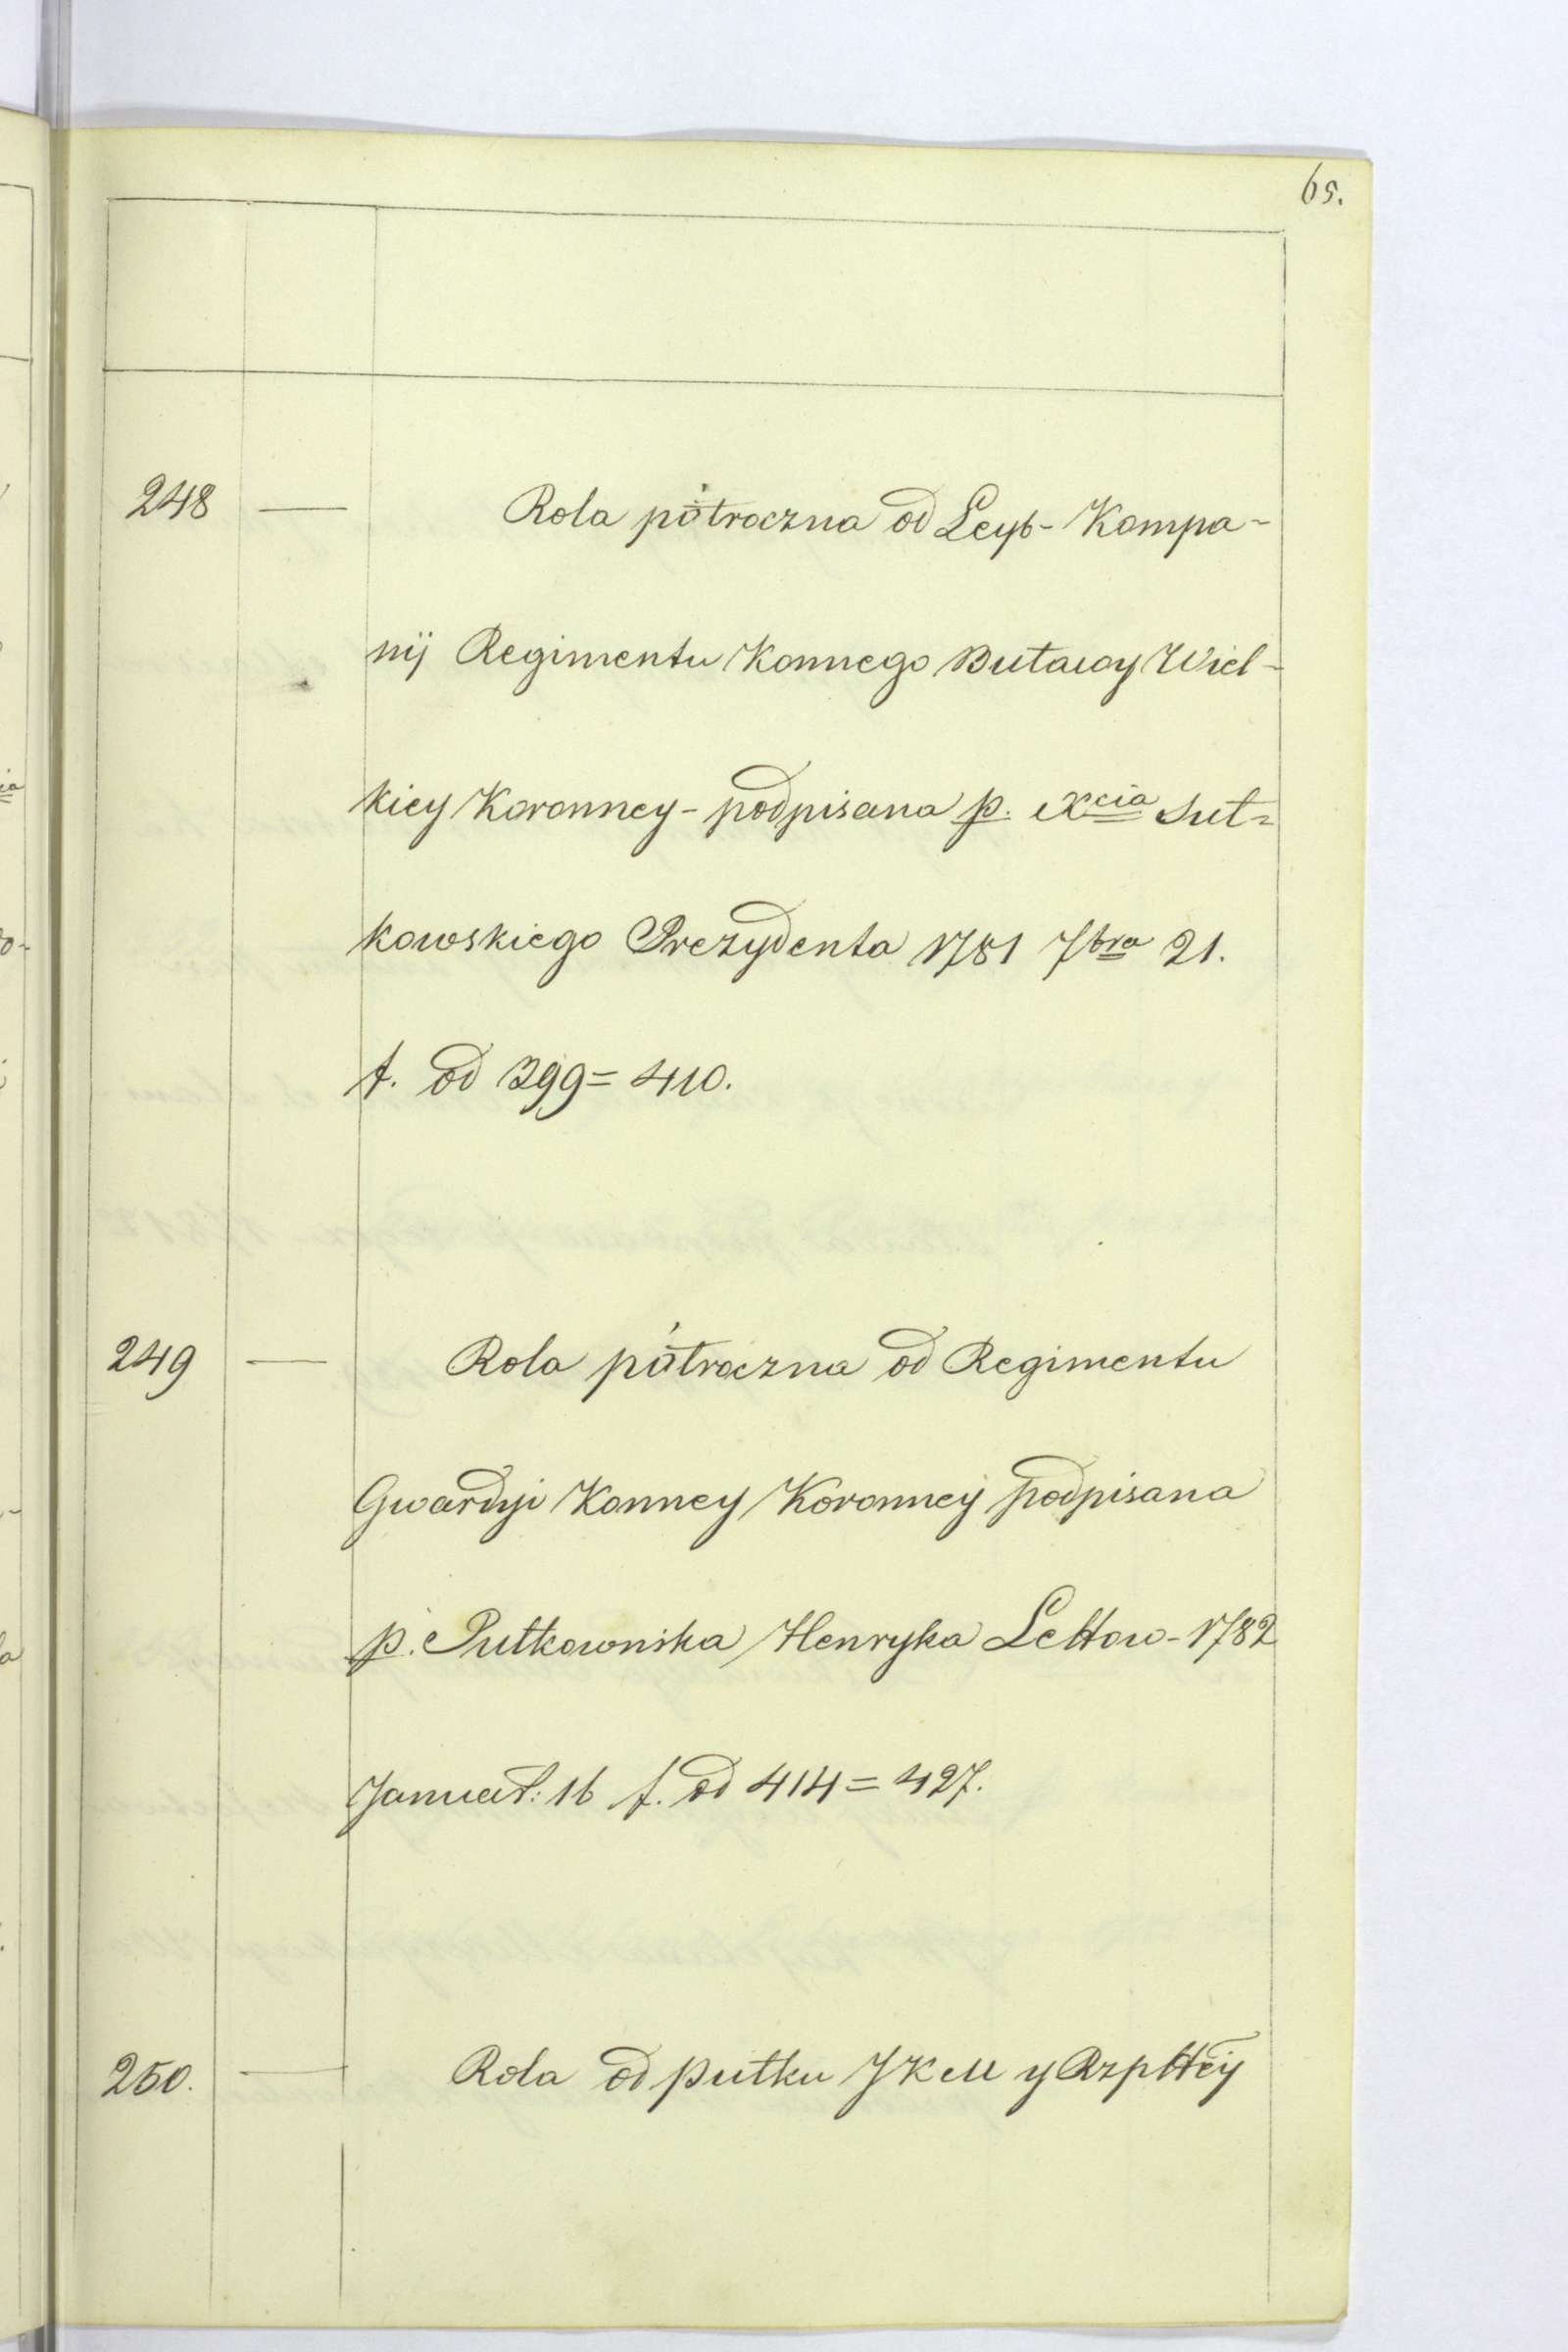 65.
248 — Rola półroczna od Leyb-Kompa-
nij Regimentu Konnego Buławy Wiel-
kiey Koronney - podpisana p. Xcia Suł=
kowskiego Prezydenta 1781 7bra 21.
f. od 399 = 410.
249 — Rola półroczna od Regimentu
Gwardyi Konney Koronney podpisana
p. Pułkownika Henryka Lettow - 1782
Januar: 16 f. od 414 = 427.
250. — Rola od pułku JKM y Rzpltey